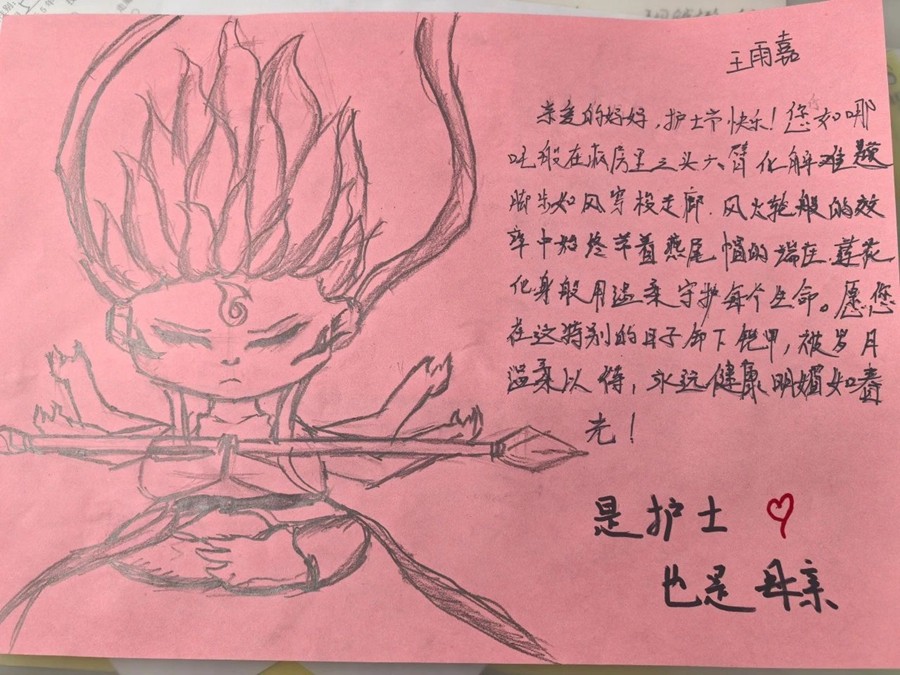 王雨嘉
亲爱的妈妈，护士节快乐！您如哪
吒般在病房里三头六臂化解难题
脚步如风穿梭走廊．风火轮般的效
率中始终带着燕尾帽的端庄．莲花
化身般用温柔守护每个生命。愿您
在这特别的日子卸下铠甲，被岁月
温柔以待，永远健康明媚如春
光！
是护士
也是母亲